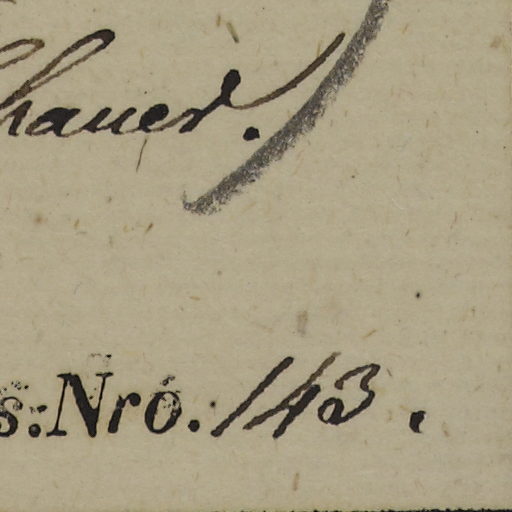 hauer.
s. Nró. 143.